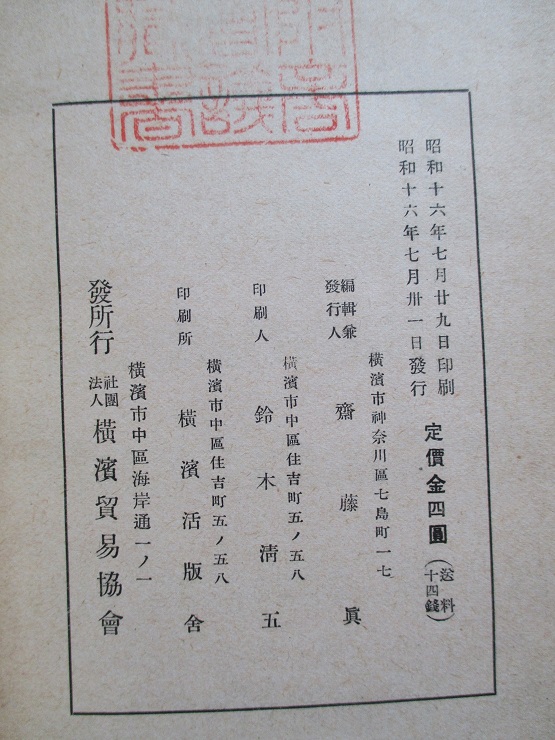 昭和十六年七月廿九日印刷
昭和十六年七月卅一日發行
定價金四圓（送料十四錢）
橫濱市神奈川區七島町一七
編輯兼發行人 齋藤眞
橫濱市中區住吉町五ノ五八
印刷人 鈴木淸五
橫濱市中區住吉町五ノ五八
印刷所 橫濱活版舍
橫濱市中區海岸通一ノ一
發所行 社團法人 橫濱貿易協會